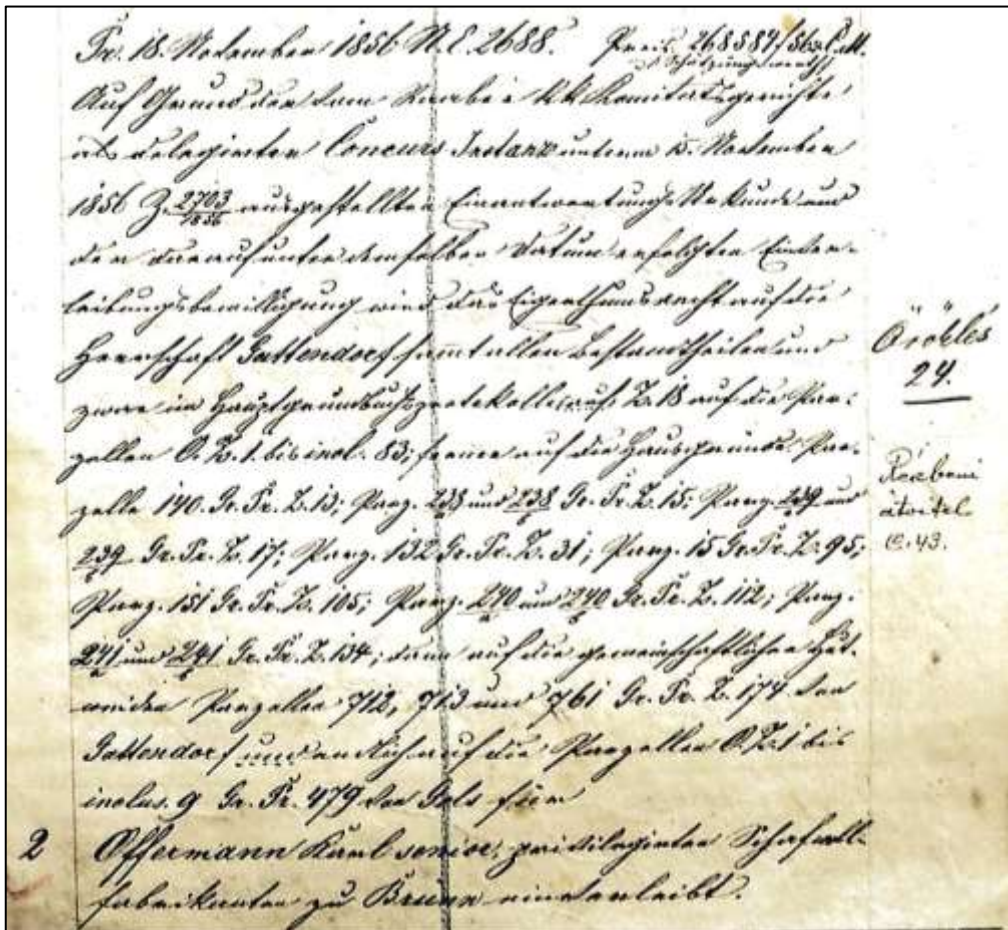 Pr. 18. November 1856 N. E. 2688. Preis 268584 f 56 xr C. M.
(Schätzungswerth)
Auf Grund der vom Raaber k. k. Komitatsgerichte
als delegirten Concurs Instanz unterm 15. November
1856 Z. 2703/1856 ausgestellten Einantwortungs Urkunde und
der darauf unter demselben Datum erfolgten Einver-
leibungsbewilligung wird das Eigenthumsrecht auf die
Herrschaft Gattendorf sammt allen Bestandtheilen und
zwar im Hauptgrundbuchsprotokolle sub Z. 18 auf die Par-
zellen O. Z. 1. bis incl. 83; ferner auf die Hausgründe: Par-
zelle 140. Gr. Pr. Z. 13; Parz. 238 und 238 Gr. Pr. Z. 15; Parz. 239 und
239 Gr. Pr. Z. 17; Parz. 132 Gr. Pr. Z. 31; Parz. 15 Gr. Pr. Z. 95;
Parz. 151 Gr. Pr. Z. 105; Parz. 240 und 240 Gr. Pr. Z. 112; Parz.
241 und 241 Gr. Pr. Z. 134; dann auf die gemeinschaftlichen Hut-
weiden Parzellen 712, 713 und 761 Gr. Pr. Z. 174 von
Gattendorf und endlich auf die Parzellen O. Z. 1 bis
inclus. 9 Gr. Pr. 479 von Gols für
2 Offermann Karl senior, privilegirten Schafwoll-
fabrikanten zu Brünn einverleibt.
Öröklés
24.
43.